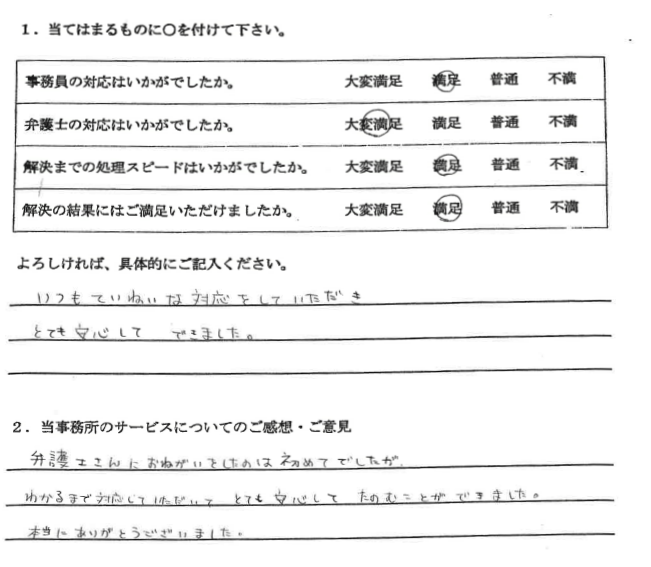 1．当てはまるものに○を付けて下さい。
事務員の対応はいかがでしたか。 大変満足 満足 普通 不満
弁護士の対応はいかがでしたか。 大変満足 満足 普通 不満
解決までの処理スピードはいかがでしたか。 大変満足 満足 普通 不満
解決の結果にはご満足いただけましたか。 大変満足 満足 普通 不満
よろしければ、具体的にご記入ください。
いつもていねいな対応をしていただき
とても安心して できました。
2．当事務所のサービスについてのご感想・ご意見
弁護士さんにおねがいをしたのは初めてでしたが、
わかるまで対応していただいて とても安心して たのむことができました。
本当にありがとうございました。